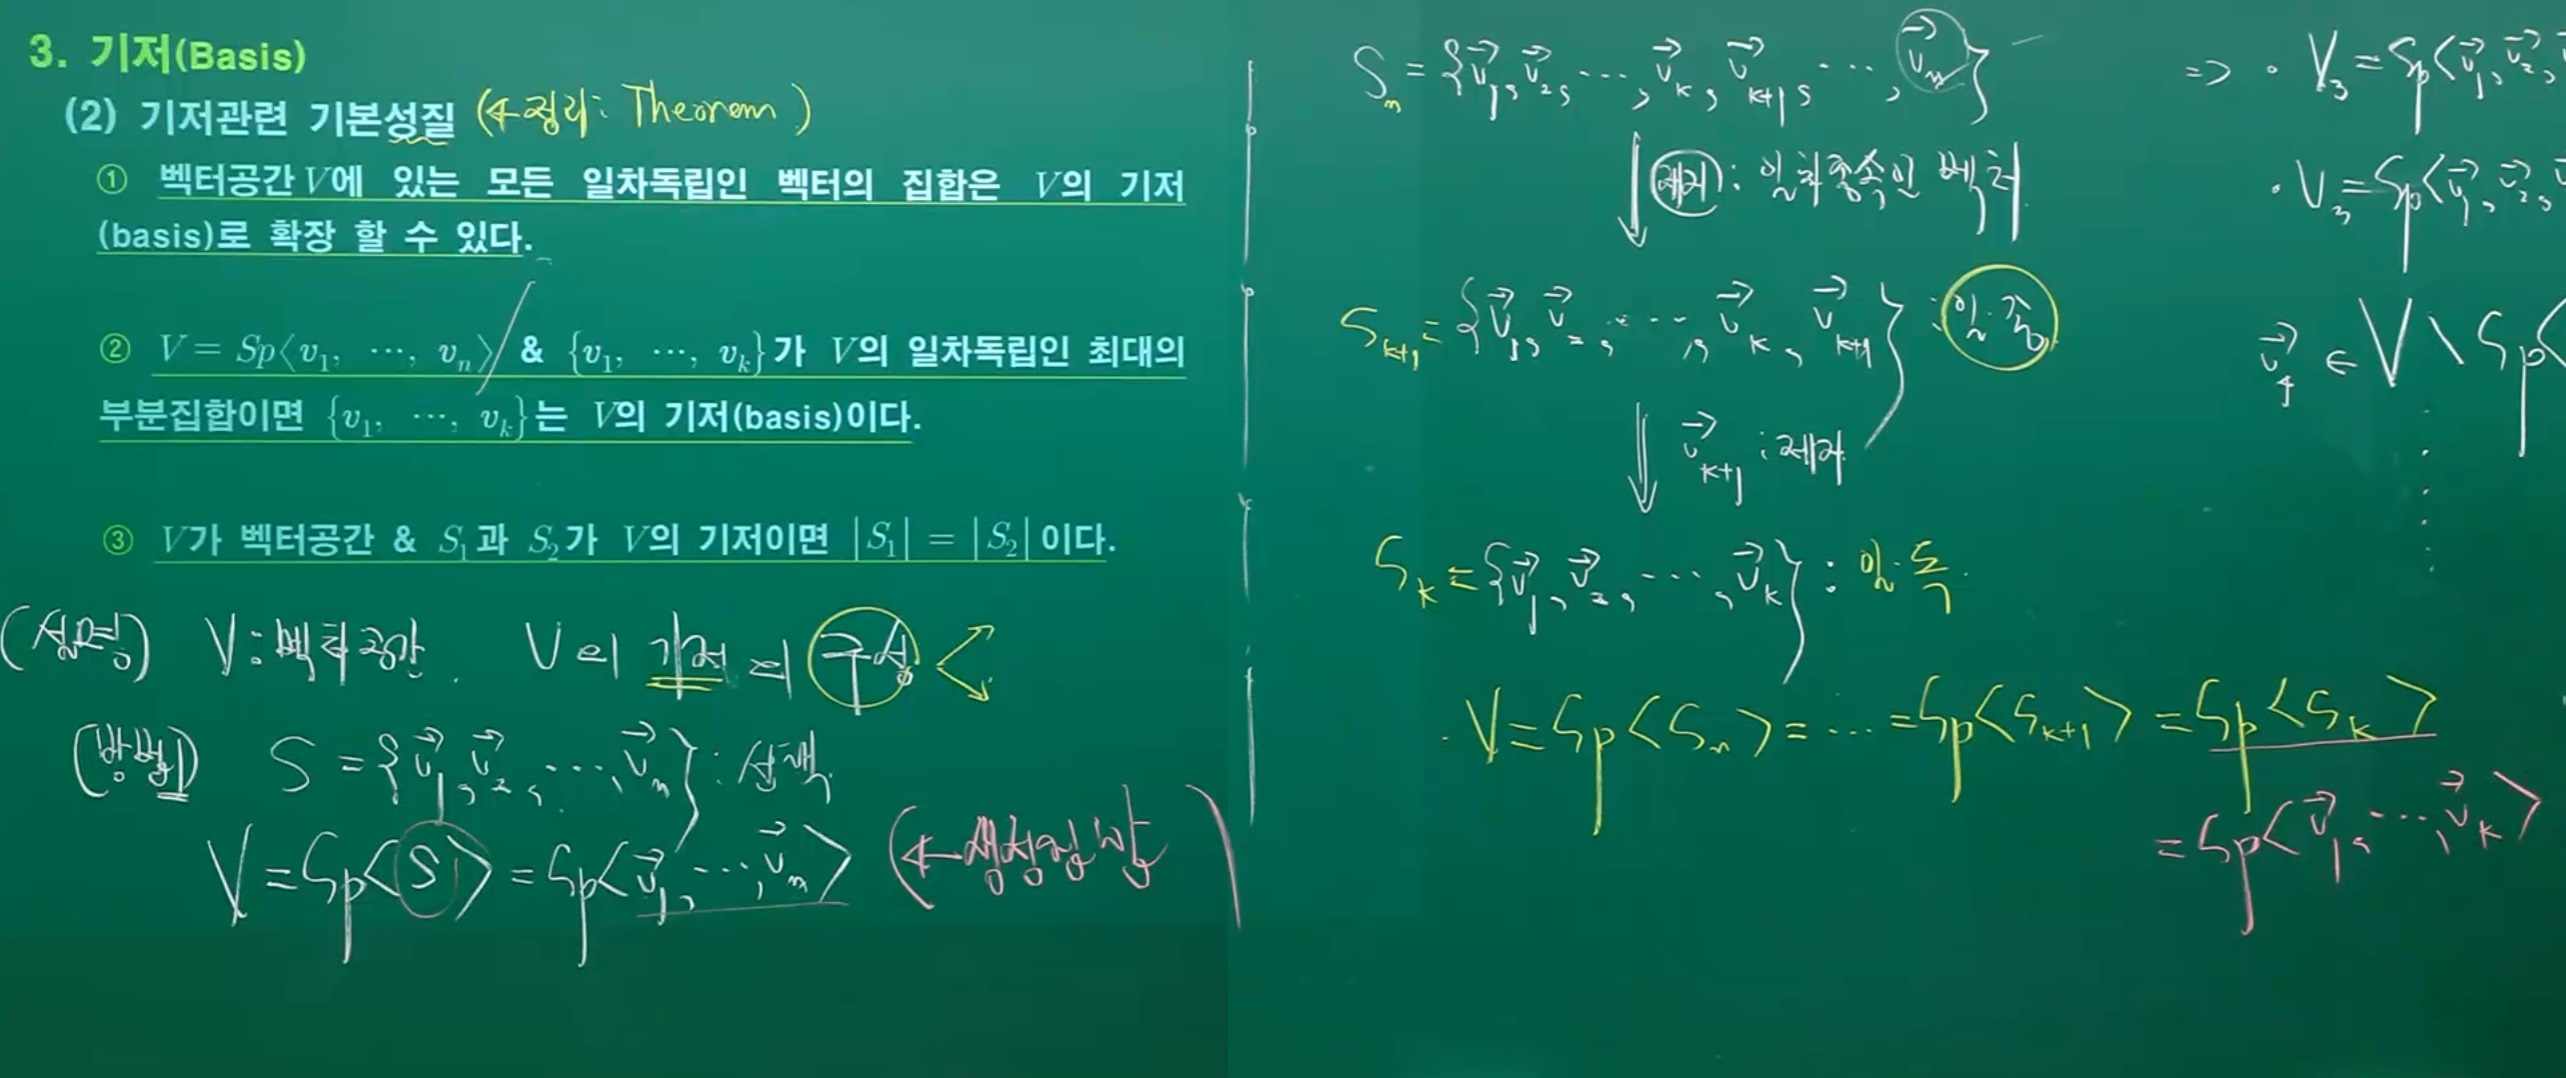 3. 기저(Basis)
(2) 기저관련 기본성질 (←정리: Theorem)
① 벡터공간 V에 있는 모든 일차독립인 벡터의 집합은 V의 기저
(basis)로 확장 할 수 있다.
② V = Sp⟨v₁, ⋯, vₙ⟩ & {v₁, ⋯, vₖ}가 V의 일차독립인 최대의
부분집합이면 {v₁, ⋯, vₖ}는 V의 기저(basis)이다.
③ V가 벡터공간 & S₁과 S₂가 V의 기저이면 |S₁| = |S₂|이다.
(설명) V : 벡터공간. V의 기저의 구성 <
(방법1) S = {v⃗₁, v⃗₂, ⋯, v⃗ₙ} : 선택.
V = Sp⟨S⟩ = Sp⟨v⃗₁, ⋯, v⃗ₙ⟩ (← 생성집합)
Sₙ = {v⃗₁, v⃗₂, ⋯, v⃗ₖ, v⃗ₖ₊₁, ⋯, v⃗ₙ}
⇓ 제거 : 일차종속인 벡터
Sₖ₊₁ = {v⃗₁, v⃗₂, ⋯, v⃗ₖ, v⃗ₖ₊₁} : 일.종.
⇓ v⃗ₖ₊₁ : 제거
Sₖ = {v⃗₁, v⃗₂, ⋯, v⃗ₖ} : 일.독.
· V = Sp⟨Sₙ⟩ = ⋯ = Sp⟨Sₖ₊₁⟩ = Sp⟨Sₖ⟩
= Sp⟨v⃗₁, ⋯, v⃗ₖ⟩
⇒ · V₃ = Sp⟨v⃗₁, v⃗₂,
· V₃ = Sp⟨v⃗₁, v⃗₂,
v⃗₄ ∈ V \ Sp⟨